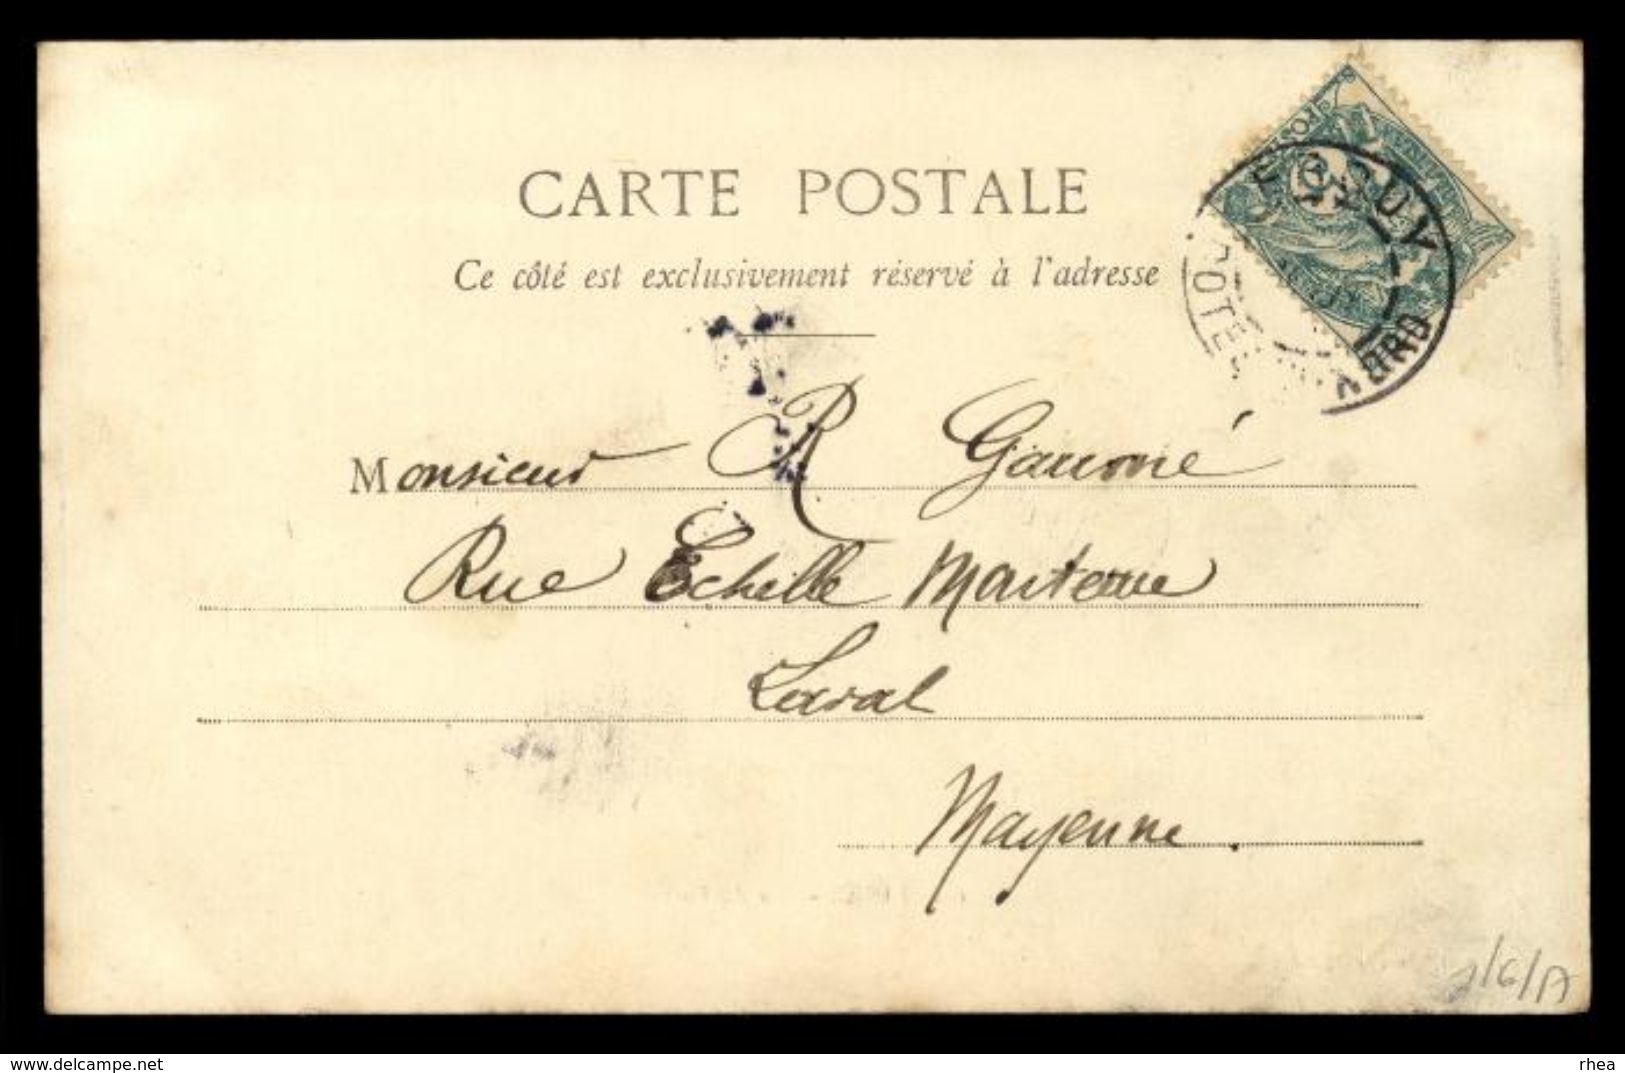 CARTE POSTALE
Ce côté est exclusivement réservé à l'adresse
Monsieur R
Rue Echelle Marteau
Laval
Mayenne.
delcampe.net
rhea